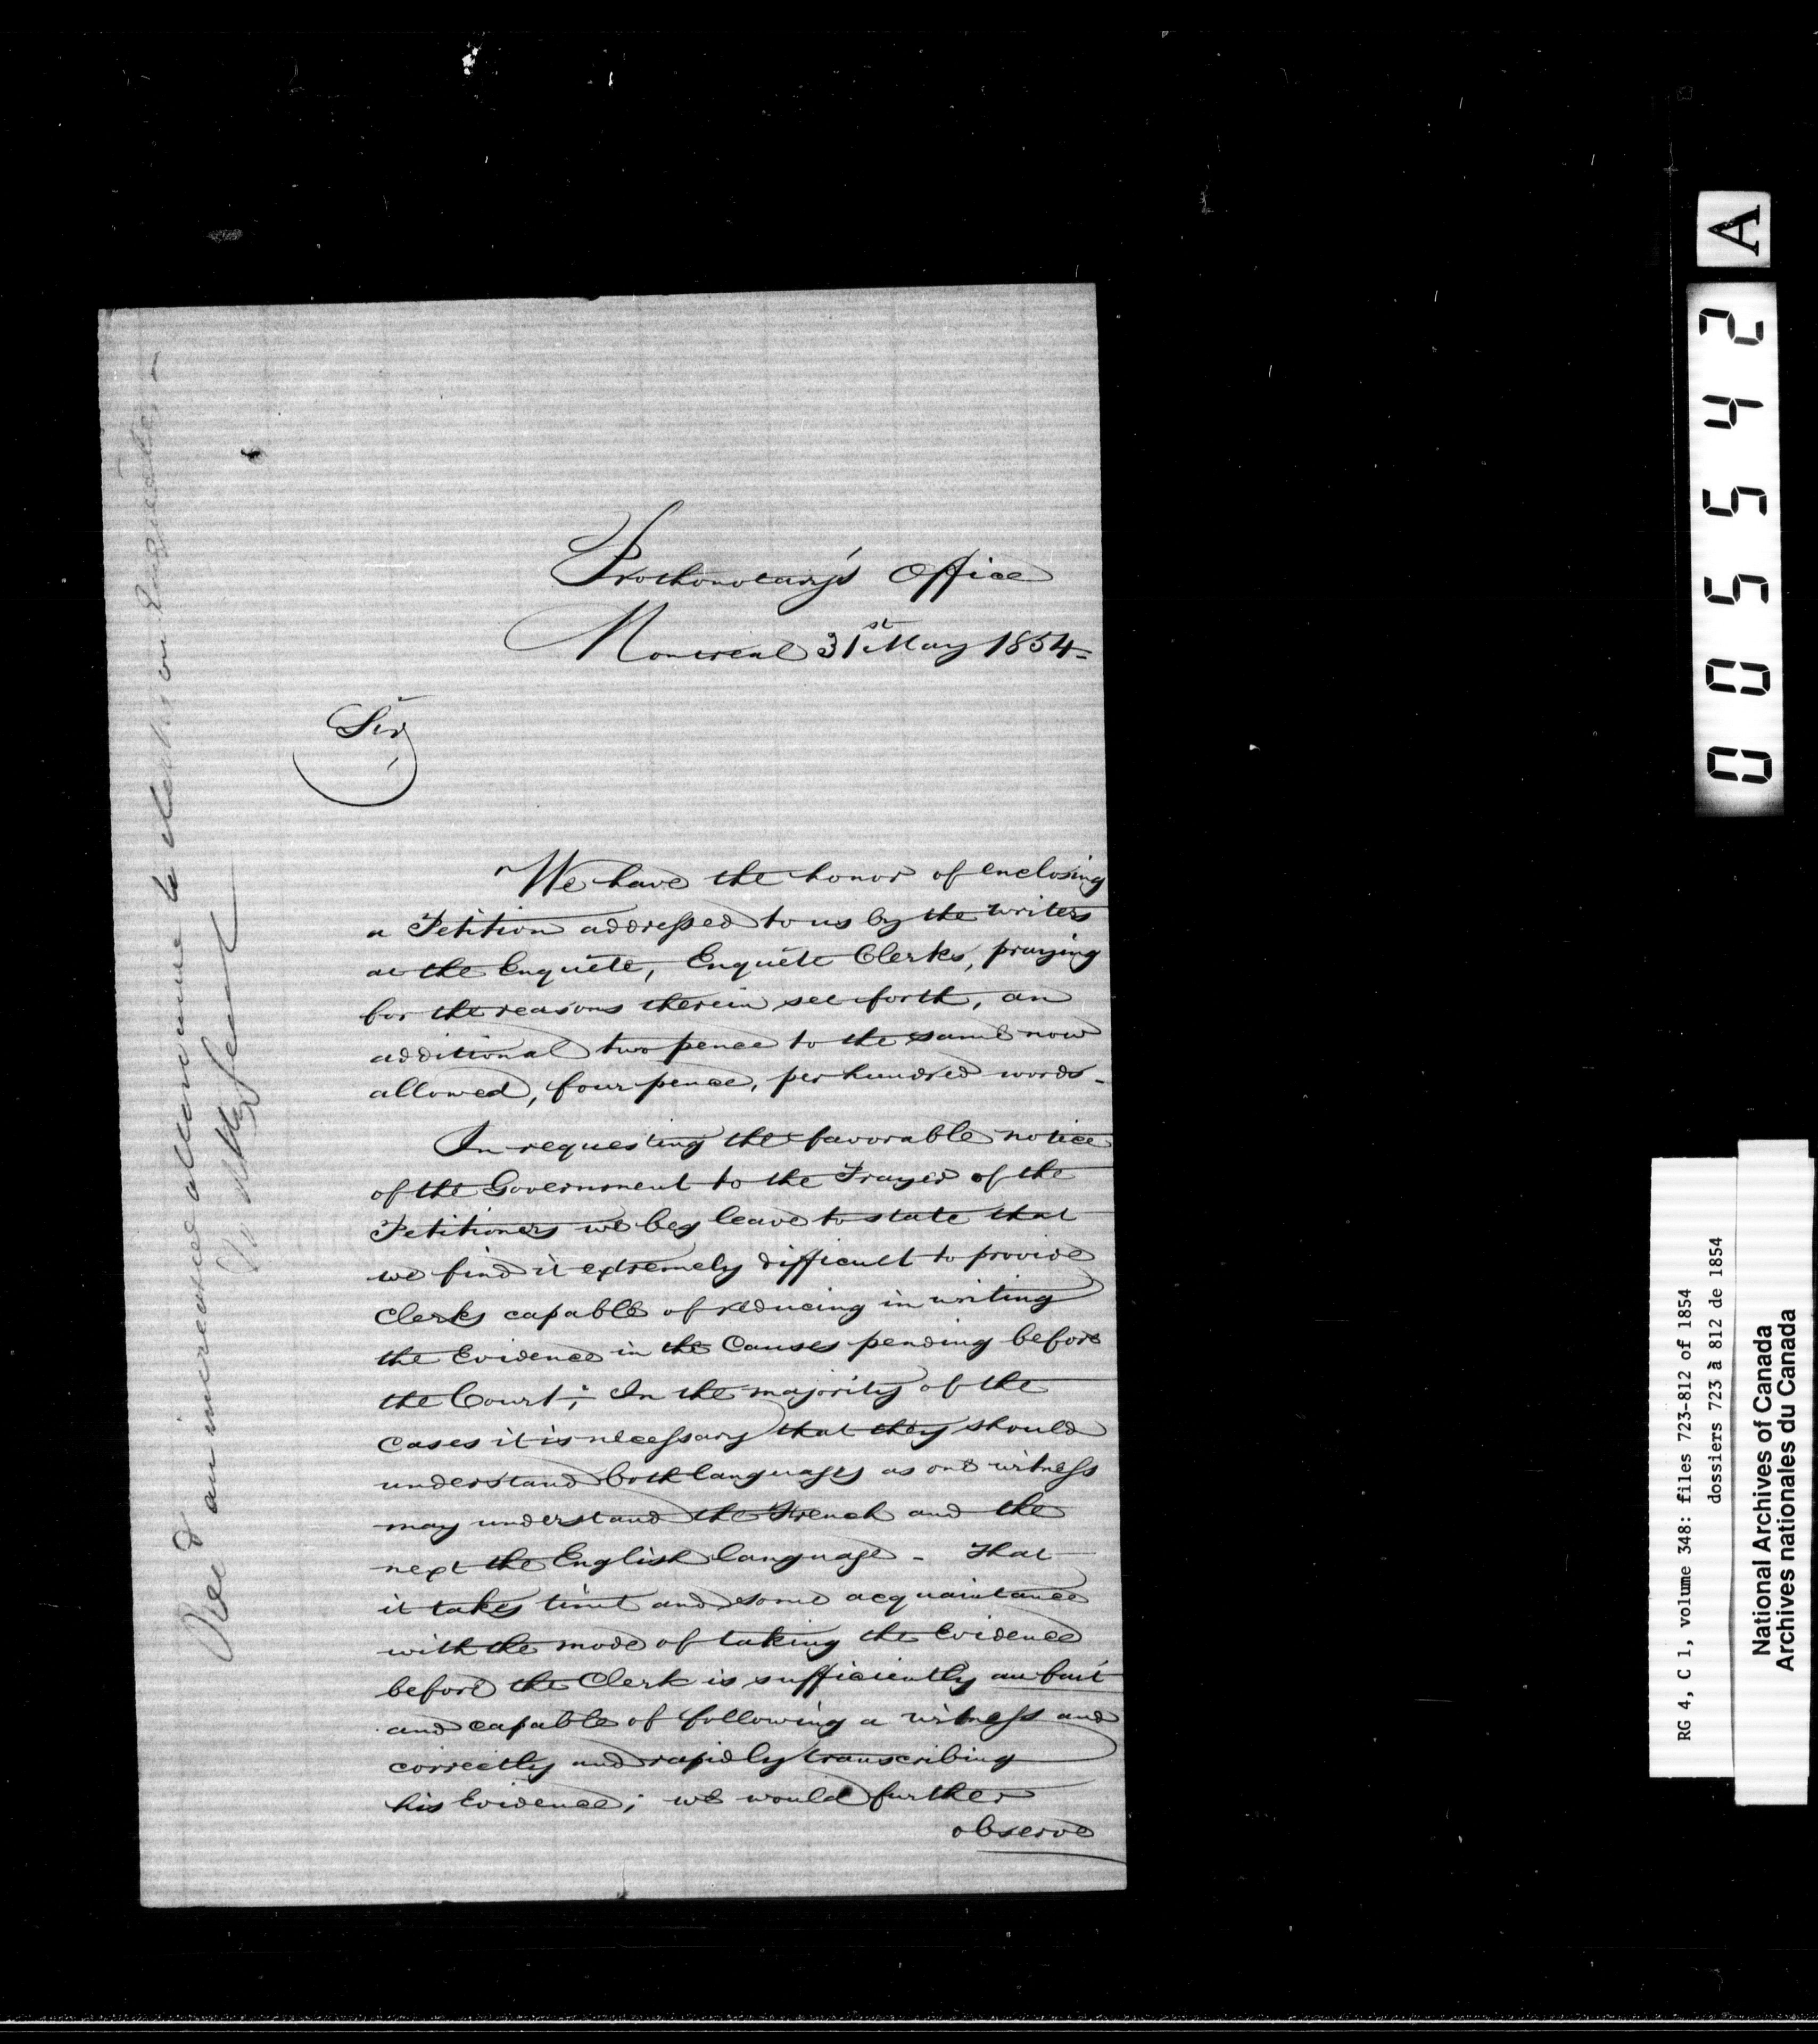 Prothonotary's Office
Montreal 31st May 1854
Sir,
We have the honor of enclosing
a Petition addressed to us by the writers
at the Enquête, Enquête Clerks, praying
for the reasons therein set forth, an
additional two pence to the same now
allowed, four pence, per hundred words.
In requesting the favorable notice
of the Government to the Prayer of the
Petitioners we beg leave to state that
we find it extremely difficult to provide
Clerks capable of reducing in writing
the Evidence in the Causes pending before
the Court; In the majority of the
Cases it is necessary that they should
understand both languages as one witness
may understand the French and the
next the English language - That
it takes time and some acquaintance
with the mode of taking the Evidence
before the Clerk is sufficiently au fait
and capable of following a witness and
correctly and rapidly transcribing
his Evidence; we would further
observe
an increased allowance to clerks on Enquête
A
005542
RG 4, C 1, volume 348: files 723-812 of 1854
dossiers 723 à 812 de 1854
National Archives of Canada
Archives nationales du Canada